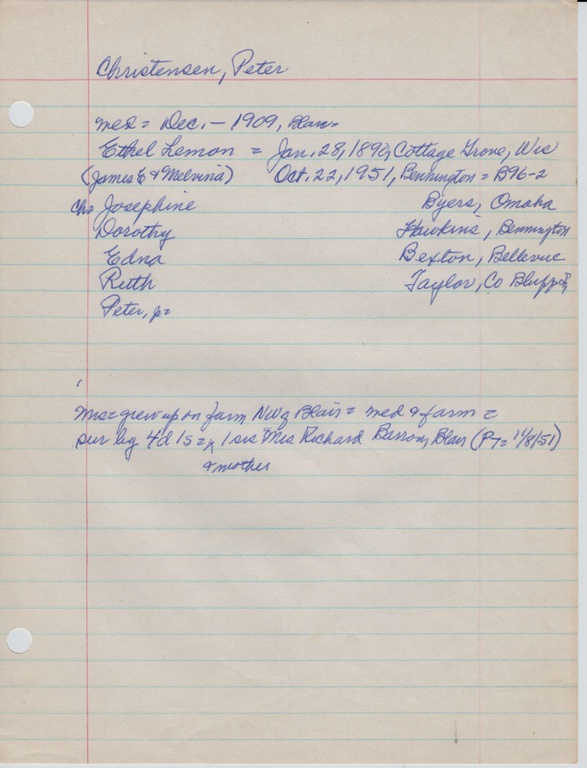 Christensen, Peter
med = Dec. - 1909, Blair
Ethel Lemon = Jan. 28, 1890, Cottage Grove, Wis
(James E & Melvina) Oct. 22, 1951, Bennington = B96-2
ch = Josephine Byers, Omaha
Dorothy Hawkins, Bennington
Edna Bexton, Bellevue
Ruth Taylor, Co Bluffs
Peter, Jr =
Mrs = grew up on farm NW of Blair = med & farm =
sur by 4 d 1 s = 1 sis Mrs Richard Barrow, Blair (PT = 11/8/51)
& mother